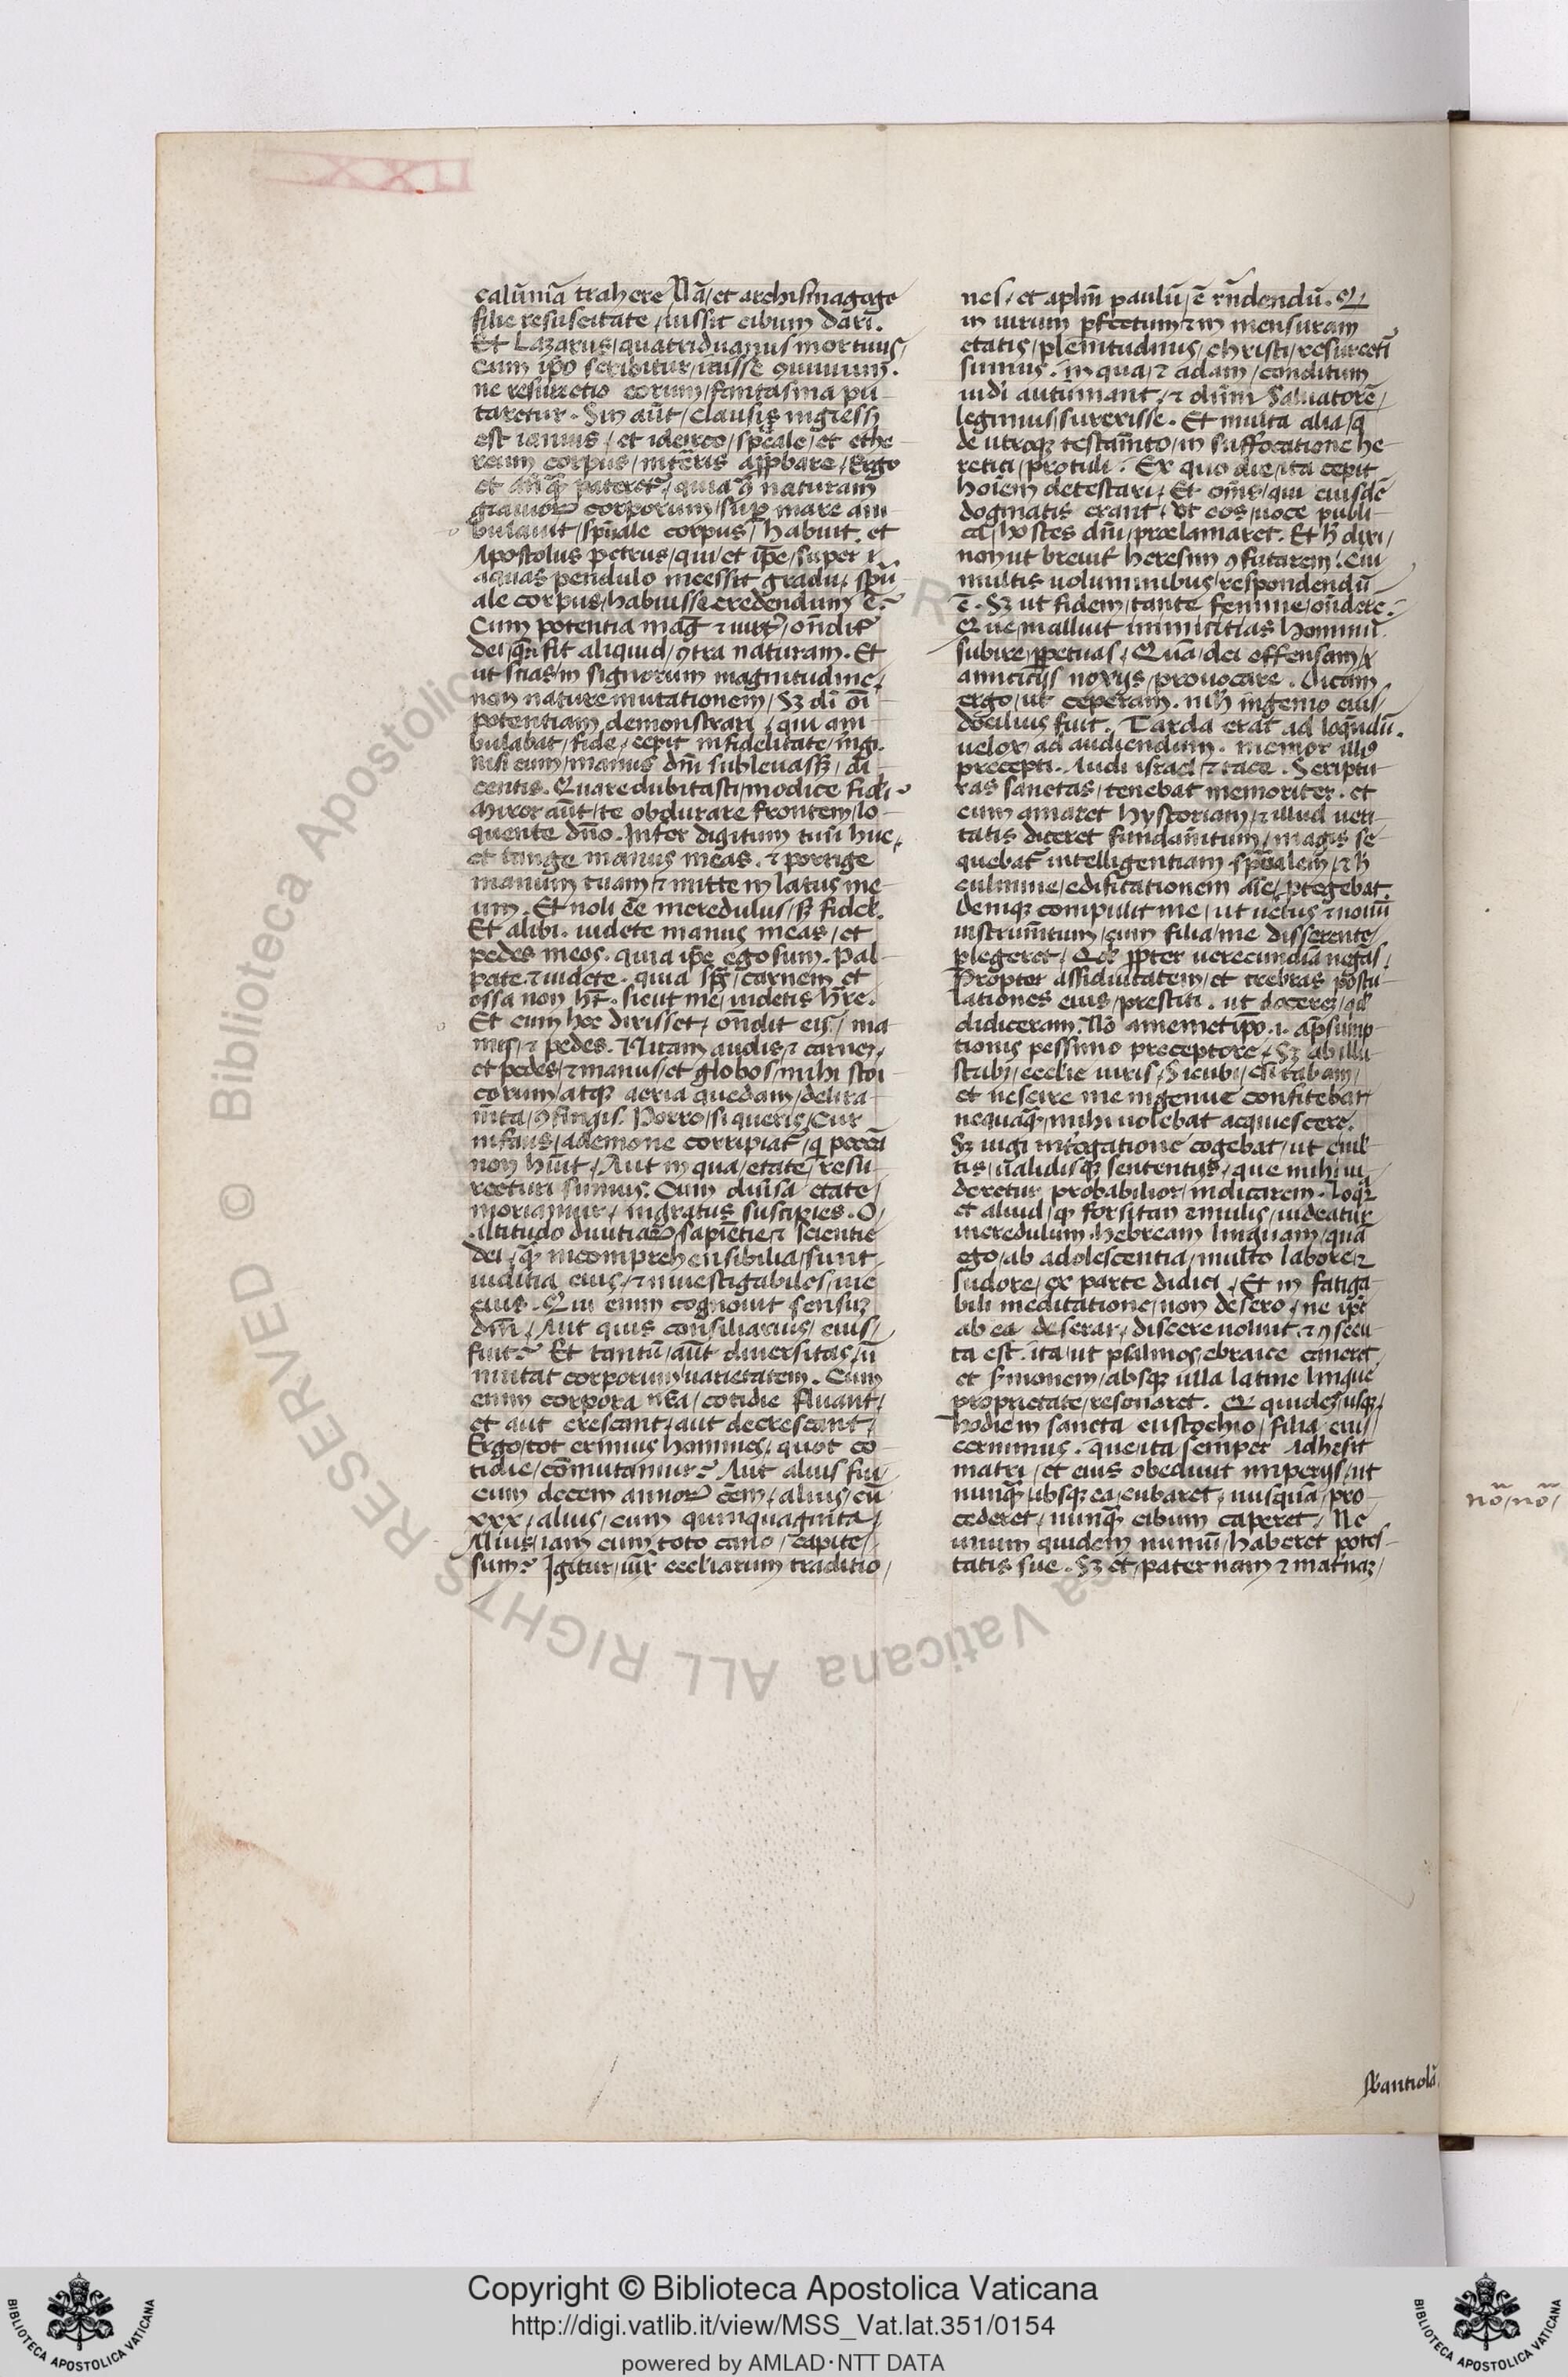 LXXII
calūniā trahere Nā/et archisinagoge
filie resuscitate/iussit cibum dari.
Et Lazarus/quatriduanus mortuus/
cum ip̄o scribitur/inisse ꝯuiuium.
ne resurrectio eorum/fantasma pu-
taretur. Sin aūt/clausis ingressꝫ
est ianuis/et idcirco/spēale/et ethe-
reum corpus/inter̄is app̄bare/Ergo
et anq̄ꝫ pateret̄/quia ꝯ̄ naturam
grauioꝝ corporum/suꝑ mare am-
bulauit/spūale corpus/habuit. et
Apostolus petrus/qui/et ip̄e/super
aquas pendulo incessit gradu/spū-
ale corpus/habuisse credendum ē?
Cum potentia mag̅ ⁊ uirt᷑/on̄dit᷑
dei/qn̄ fit aliquid/ꝯtra naturam. Et
ut scias/in signorum magnitudine/
non nature mutationem/Sꝫ di oī
potentiam demonstrari/qui am-
bulabat/fide/cepit infidelitate/m̄gi.
nisi eum/manus dn̄i subleuassꝫ/di-
centis. Quare dubitasti/modice fidei?
Miror aūt/te obdurare frontem/lo-
quente dn̄o. Infer digitum tuū huc/
et tange manus meas. ⁊ porrige
manum tuam/⁊ mitte in latus me-
um. Et noli ēe incredulus/sꝫ fidel.
Et alibi. uidete manus meas/et
pedes meos. quia ip̄e ego sum. Pal-
pate ⁊ uidete. quia sp̄s/carnem et
ossa non ht̄. sicut me/uidetis hr̄e.
Et cum hoc dixisset/on̄dit eis/ma-
nus/⁊ pedes. Nitam audis ⁊ carnes/
et pedes/⁊ manus/et globos/mihi stoi-
corum/atqꝫ aeria quedam/delira-
m̄ta/ꝯfingis. Porro/si queris/cur
infans/a demone corripiat᷑/q̇ peccā
non hūit/Aut in qua/etate/resu-
recturi sumus. Cum diūsa etate/
moriamur/ingratus suscipies. O/
Altitudo diuitiaꝝ/sapiētie ⁊ scientie
dei/q̄ꝫ incomprehensibilia/sunt
iuditia eius/⁊ inuestigabiles/uie
eius. Quis enim cognouit sensuꝫ
dn̄i/Aut quis consiliarius/eius/
fuit? Et tantū/aūt diuersitas/n̄
mutat corporum/uarietatem. Cum
enim corpora nr̄a/cotidie fluant/
et aut crescant/aut decrescant/
Ergo/tot erimus homines/quot co-
tidie/cōmutamur? Aut alius fui/
cum decem annoꝝ ēem/alius/cū
xxx/alius/cum quinquaginta/
Alius/iam cum toto cano/capite/
sum? Igitur/iux̄ eccliarum traditio/
nes/et aplm̄ paulū/ē rn̄dendū. Q
in uirum pfectum ⁊ in mensuram
etatis/plenitudinis/christi/resurecti
sumus. in qua/⁊ adam/conditum
iudi autumant/⁊ dn̄m Saluatorē/
legimus/surexisse. Et multa alia/q̄
de utroqꝫ testam̄to/in suffocatione he-
retici/protuli. Ex quo die/ita cepit
hoīem detestari/Et om̄s/qui eiusdē
dogmatis erant/ut eos/uoce publi-
ca/hostes dn̄i/proclamaret. Et h̄ dixi/
non ut breuit᷑ heresim ꝯfutarem/cui
multis uoluminibus/respondendū
ē. Sꝫ ut fidem/tante femine/on̄dere.
Que/maluit inimicitias hominū
subire/ꝑpetuas/Quā/dei offensam/
amicicijs noxijs/prouocare. Dicam
ergo/ut ceperam. nih̄ ingenio eius/
docilius fuit. Tarda erat ad loqn̄dū.
uelox ad audiendum. memor illiꝰ
precepti. Audi israel ⁊ tace. Scriptu-
ras sanctas/tenebat memoriter. et
cum amaret hystoriam/⁊ illud ueri-
tatis diceret fundam̄tum/magis se-
quebat᷑ intelligentiam spūalem/⁊ h̄
culmine/edificationem aīe/ptegebat.
Deniqꝫ compulit me/ut uetus ⁊ nouū
instrum̄tum/cum filia/me disserente/
plegeret/Qd̄ ꝓpter uerecundiā negās/
Propter assiduitatem/et crebras postu-
lationes eius/prestiti. ut docereꝫ/qd̄
didiceram. Nō a memetip̄o .i. a p̄sump-
tionis pessimo preceptore/Sꝫ ab illu-
stribꝫ/ecclie uiris/Sicubi/esitabam/
et nescire me ingenue confitebar/
nequaq̄ꝫ/mihi uolebat acquiescere.
Sꝫ iugi int̄rogatione cogebat/ut e mul-
tis/ualidisqꝫ sententijs/que mihi ui-
deretur probabilior/indicarem. Loqꝫ
et aliud/qd̄ forsitan emulis/uideatur
incredulum. hebream linguam/quā
ego/ab adolescentia/multo labore ⁊
sudore/ex parte didici/Et in fatiga-
bili meditatione/non desero/ne ip̄e
ab ea deserar/discere uoluit/⁊ ꝯsecu-
ta est. ita/ut psalmos/ebraice caneret/
et s̄monem/absqꝫ ulla latine lingue
proprietate/resonaret. Qd̄ quideꝫ/usqꝫ/
hodie in sancta eustochio/filia eius
cernimus. que ita semper Adhesit
matri/et eius obediuit imperijs/ut
nunq̄ꝫ absqꝫ ea/cubaret/nusquā/pro-
cederet/nunq̄ꝫ cibum caperet/Ne
unum quidem num̄/haberet potes-
tatis sue. Sꝫ et/paternam ⁊ mat᷑naꝫ/
nō/nō/
Copyright © Biblioteca Apostolica Vaticana
http://digi.vatlib.it/view/MSS_Vat.lat.351/0154
powered by AMLAD·NTT DATA
BIBLIOTECA APOSTOLICA VATICANA
BIBLIOTECA APOSTOLICA VATICANA